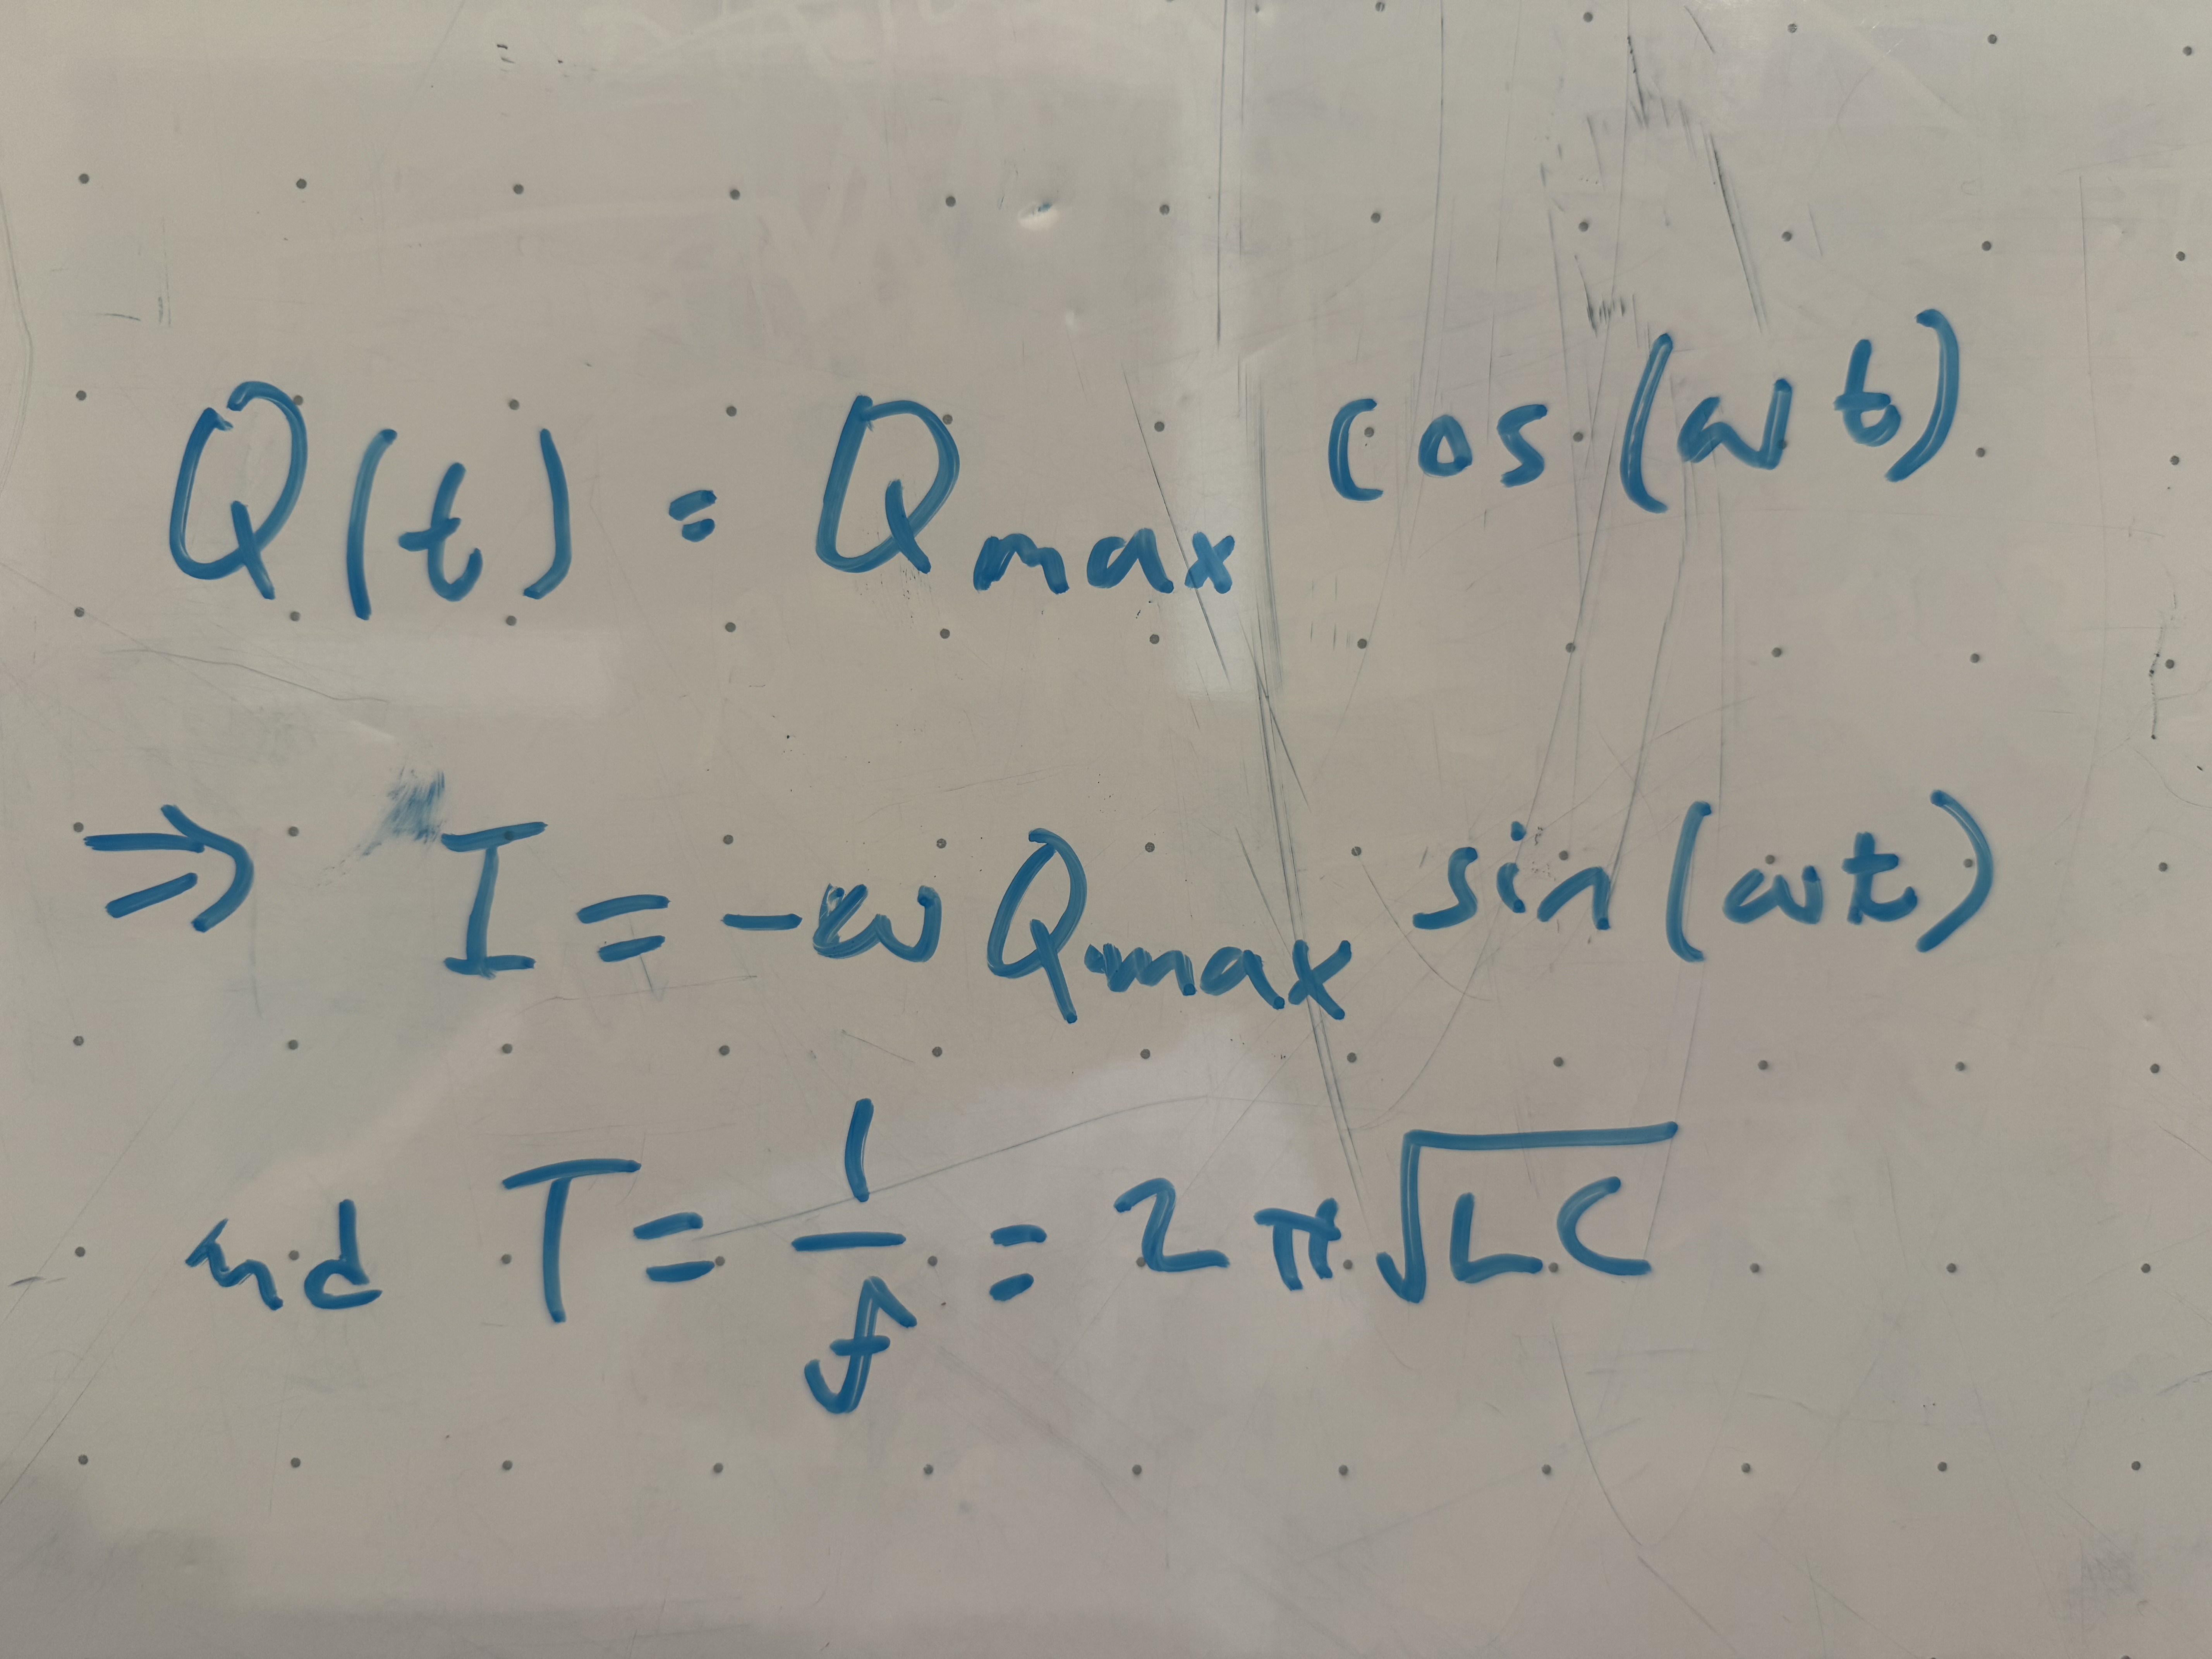 Q(t) = Qmax cos(ωt)
⇒ I = -ω Qmax sin(ωt)
nd T = 1/f = 2π√LC